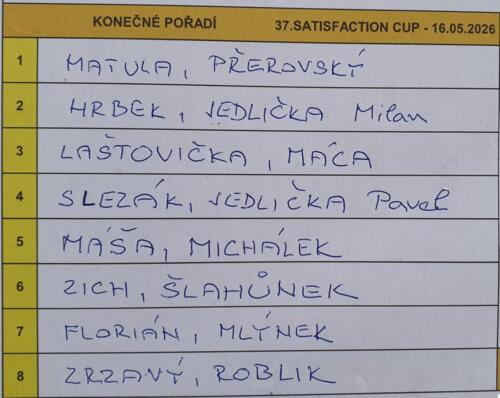 KONEČNÉ POŘADÍ 37.SATISFACTION CUP - 16.05.2026
1 MATULA, PŘEROVSKÝ
2 HRBEK, JEDLIČKA Milan
3 LAŠTOVIČKA, MÁCA
4 SLEZÁK, JEDLIČKA Pavel
5 MÁŠA, MICHÁLEK
6 ZICH, ŠLAHŮNEK
7 FLORIÁN, MLÝNEK
8 ZRZAVÝ, ROBLIK